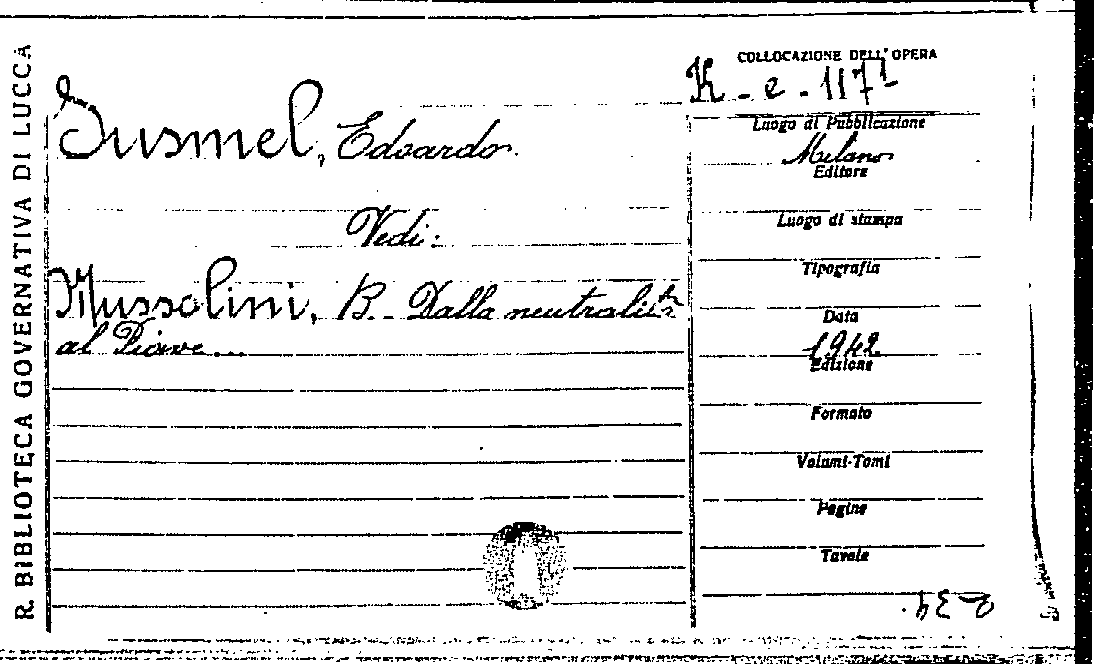 R. BIBLIOTECA GOVERNATIVA DI LUCCA
Susmel, Edoardo.
Vedi:
Mussolini, B. - Dalla neutralità
al Piave...
COLLOCAZIONE DELL'OPERA
K - e - 1171
Luogo di Pubblicazione
Milano
Editore
Luogo di stampa
Tipografia
Data
1942.
Edizione
Formato
Volumi-Tomi
Pagine
Tavole